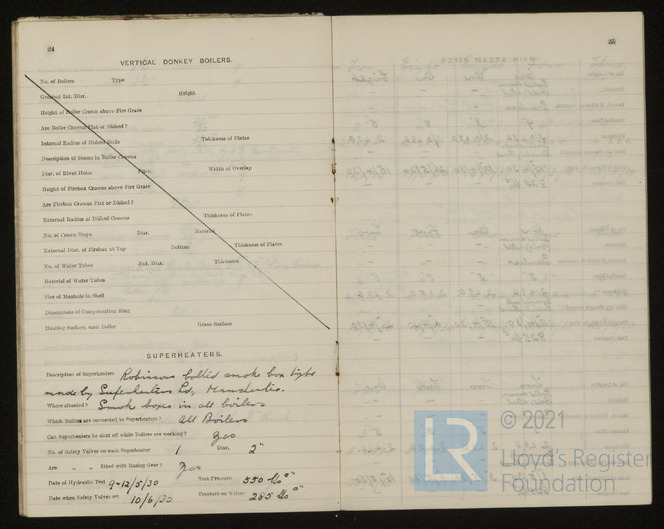 24
VERTICAL DONKEY BOILERS.
No. of Boilers Type
Greatest Int. Diar. Height
Height of Boiler Crown above Fire Grate
Are Boiler Crowns Flat or Dished?
Internal Radius of Dished Ends Thickness of Plates
Description of Seams in Boiler Crowns
Diar. of Rivet Holes Pitch Width of Overlap
Height of Firebox Crowns above Fire Grate
Are Firebox Crowns Flat or Dished?
External Radius of Dished Crowns Thickness of Plates
No. of Crown Stays Diar. Material
External Diar. of Firebox at Top Bottom Thickness of Plates
No. of Water Tubes Ext. Diar. Thickness
Material of Water Tubes
Size of Manhole in Shell
Dimensions of Compensating Ring
Heating Surface, each Boiler Grate Surface
SUPERHEATERS.
Description of Superheaters Robinsons bolted smoke box type
made by Superheaters Ld, Manchester.
Where situated? Smoke boxes in all boilers
Which Boilers are connected to Superheaters? All Boilers
Can Superheaters be shut off while Boilers are working? Yes
No. of Safety Valves on each Superheater 1 Diar. 2"
Are " " fitted with Easing Gear? Yes
Date of Hydraulic Test 9-12/5/30 Test Pressure 550 lbs □"
Date when Safety Valves set 10/6/30 Pressure on Valves 285 lbs □"
25
LR
© 2021
Lloyd's Register
Foundation